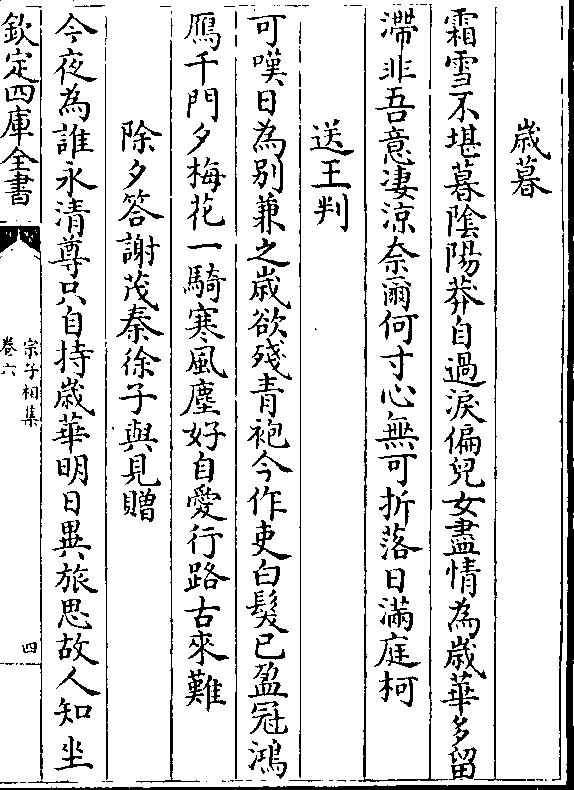 歲暮
霜雪不堪暮陰陽莽自過淚偏兒女盡情為歲華多留
滯非吾意凄涼奈爾何寸心無可折落日滿庭柯
送王判
可嘆日為別兼之歲欲殘青袍今作吏白髮已盈冠鴻
鴈千門夕梅花一騎寒風塵好自愛行路古來難
除夕答謝茂秦徐子與見贈
今夜為誰永清尊只自持歲華明日異旅思故人知坐
欽定四庫全書
宗子相集
卷六
四